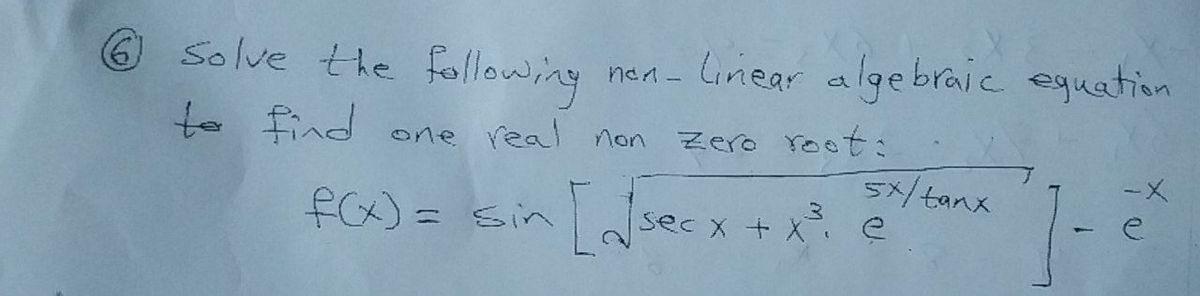 ⑥ Solve the following non-linear algebraic equation
to find one real non zero root:
f(x) = sin [√(sec x + x³. e^(5x/tanx))] - e^(-x)